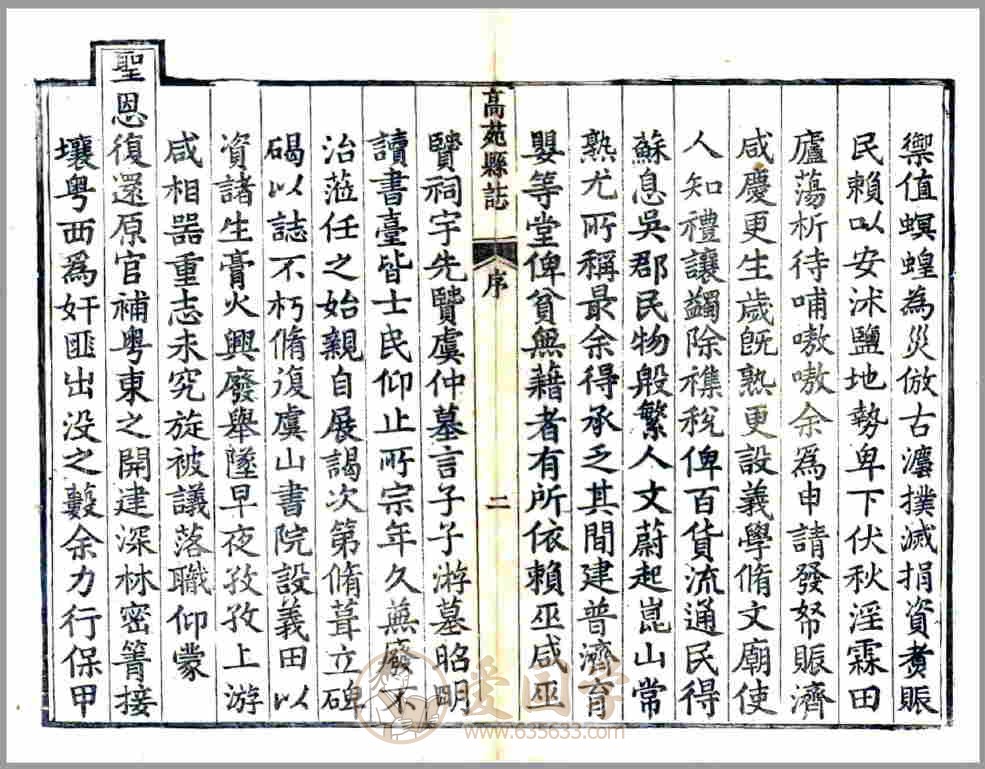 禦值螟蝗為災倣古灋撲滅捐資煑賑
民賴以安沭鹽地勢卑下伏秋淫霖田
廬蕩析待哺嗷嗷余爲申請發帑賑濟
咸慶更生歲既熟更設義學脩文廟使
人知禮讓蠲除襍稅俾百貨流通民得
蘇息吳郡民物般繁人文蔚起崑山常
熟尤所稱最余得承乏其間建普濟育
嬰等堂俾貧無藉者有所依賴巫咸巫
高苑縣誌 序 二
賢祠宇先賢虞仲墓言子子游墓昭明
讀書臺皆士民仰止所宗年久蕪廢不
治蒞任之始親自展謁次第脩葺立碑
碣以誌不朽脩復虞山書院設義田以
資諸生膏火興廢舉墜早夜孜孜上游
咸相器重志未究旋被議落職仰蒙
聖恩復還原官補粤東之開建深林密箐接
壤粤西爲奸匪出没之藪余力行保甲
爱国学
www.635633.com